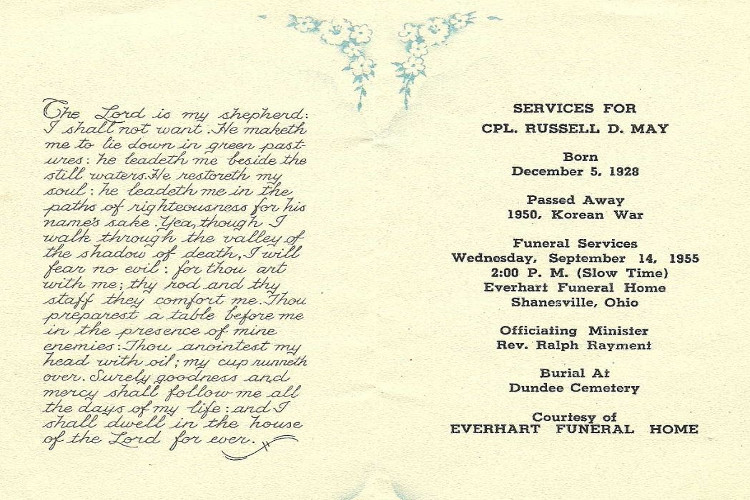 The Lord is my shepherd:
I shall not want. He maketh
me to lie down in green past-
ures: he leadeth me beside the
still waters. He restoreth my
soul: he leadeth me in the
paths of righteousness for his
name's sake. Yea, though I
walk through the valley of
the shadow of death, I will
fear no evil: for thou art
with me; thy rod and thy
staff they comfort me. Thou
preparest a table before me
in the presence of mine
enemies: Thou anointest my
head with oil; my cup runneth
over. Surely goodness and
mercy shall follow me all
the days of my life: and I
shall dwell in the house
of the Lord for ever.
SERVICES FOR
CPL. RUSSELL D. MAY
Born
December 5, 1928
Passed Away
1950, Korean War
Funeral Services
Wednesday, September 14, 1955
2:00 P. M. (Slow Time)
Everhart Funeral Home
Shanesville, Ohio
Officiating Minister
Rev. Ralph Rayment
Burial At
Dundee Cemetery
Courtesy of
EVERHART FUNERAL HOME